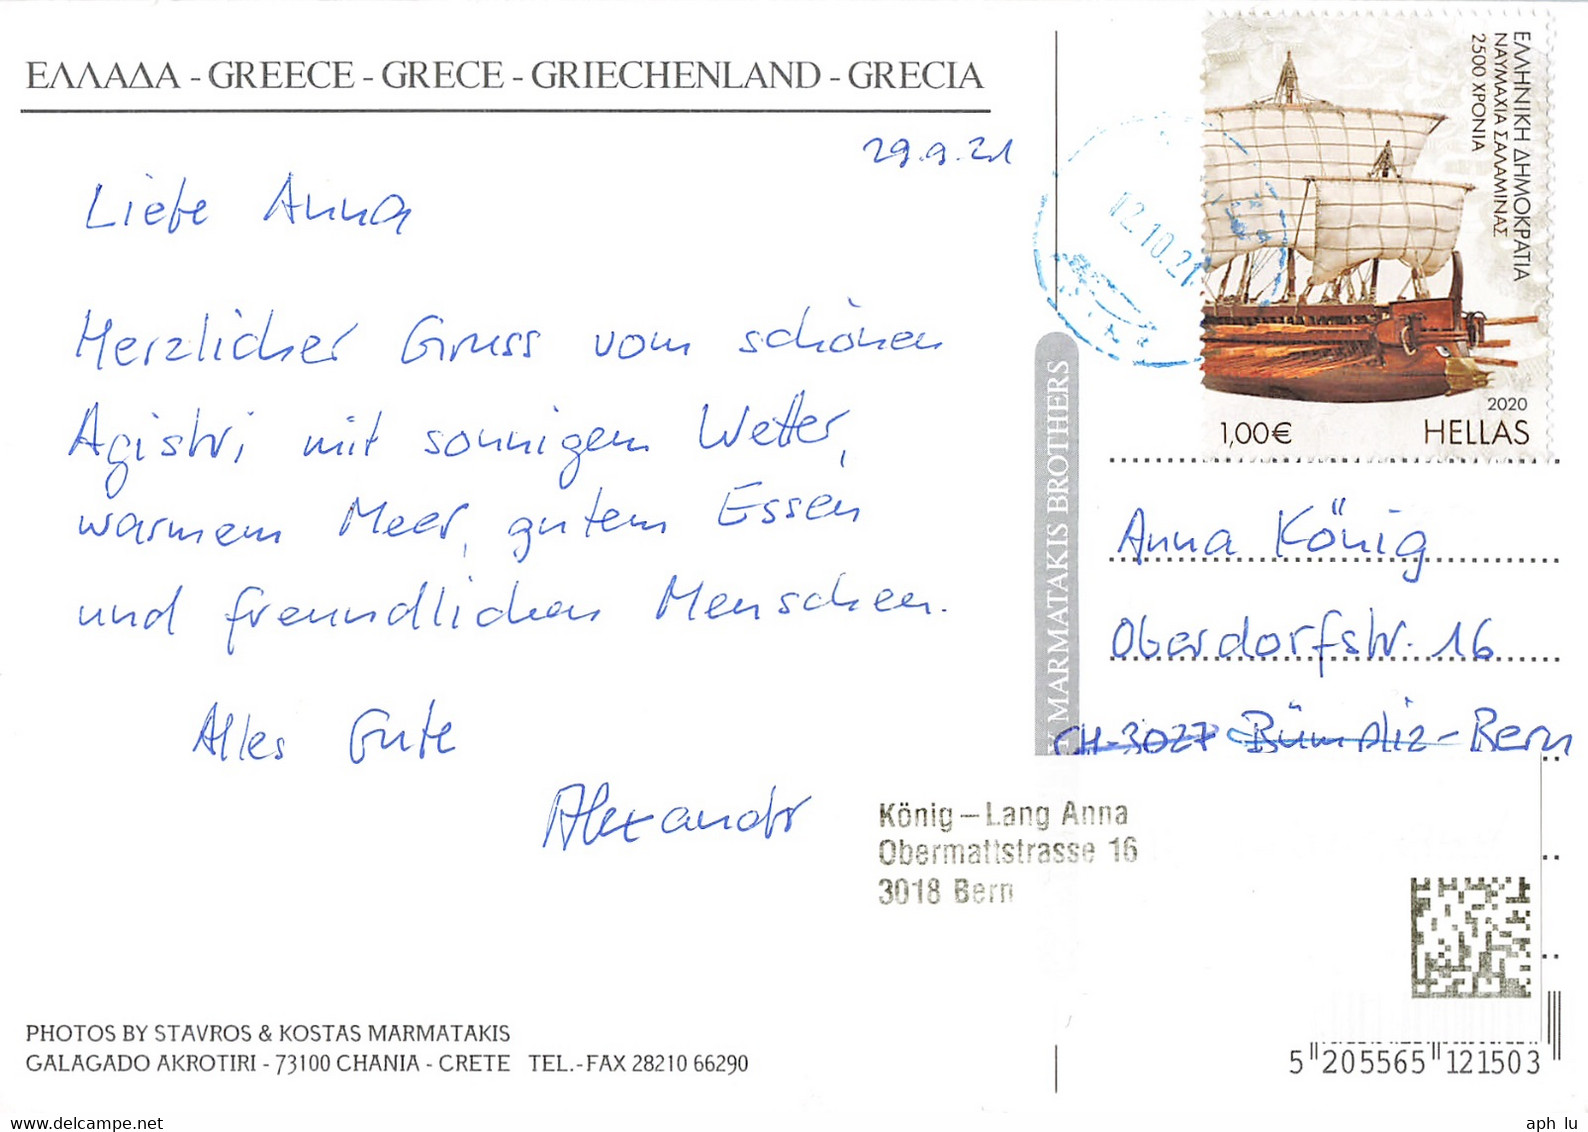 ΕΛΛΑΔΑ - GREECE - GRECE - GRIECHENLAND - GRECIA
29.9.21
Liebe Anna
Herzlicher Gruss vom schönen
Agistri mit sonnigem Wetter,
warmem Meer, gutem Essen
und freundlichen Menschen.
Alles Gute
Alexander
PHOTOS BY STAVROS & KOSTAS MARMATAKIS
GALAGADO AKROTIRI - 73100 CHANIA - CRETE TEL.-FAX 28210 66290
MARMATAKIS BROTHERS
12.10.21
ΕΛΛΗΝΙΚΗ ΔΗΜΟΚΡΑΤΙΑ
ΝΑΥΜΑΧΙΑ ΣΑΛΑΜΙΝΑΣ
2500 ΧΡΟΝΙΑ
2020
1,00€ HELLAS
Anna König
Oberdorfstr. 16
CH-3027 Bümpliz-Bern
König-Lang Anna
Obermattstrasse 16
3018 Bern
5 205565 121503
aph lu